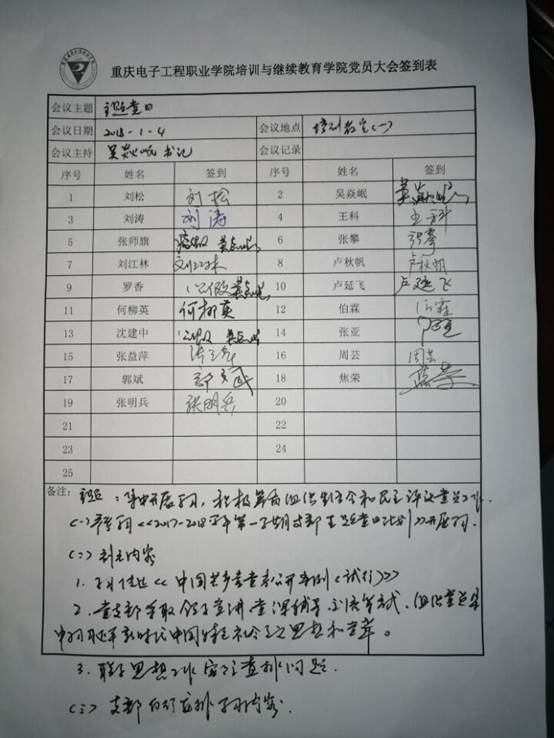 重庆电子工程职业学院培训与继续教育学院党员大会签到表
会议主题 主题党日
会议日期 2018-1-4 会议地点 培训教室(一)
会议主持 吴焱岷 书记 会议记录
序号 姓名 签到 序号 姓名 签到
1 刘松 刘松 2 吴焱岷 吴焱岷
3 刘涛 刘涛 4 王科 王科
5 张师旗 吴焱岷 6 张攀 张攀
7 刘江林 刘江林 8 卢秋帆 卢秋帆
9 罗香 公假 吴焱岷 10 卢延飞 卢延飞
11 何柳英 何柳英 12 伯霖 伯霖
13 沈建中 公假 吴焱岷 14 张亚
15 张益萍 16 周芸 周芸
17 郭斌 18 焦荣
19 张明兵 张明兵 20
21 22
23 24
25
备注: 主题:集中开展学习,积极筹备组织生活会和民主评议党员工作
(一) <<2017-2018学年第一学期支部主题党日计划>>开展学习.
(二) 内容
1. <<中国共产党党务公开条例(试行)>>
2. 党支部采取领导宣讲 党课辅导 交流等方式,组织党员集
中学习习近平新时代中国特色社会主义思想和党章。
3. 思想工作 查排问题.
(三) 支部自行安排学习内容.